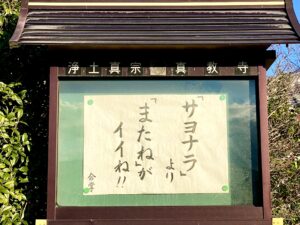 浄土真宗 真教寺
「サヨナラ」より
「またね」が
イイね!!
合掌